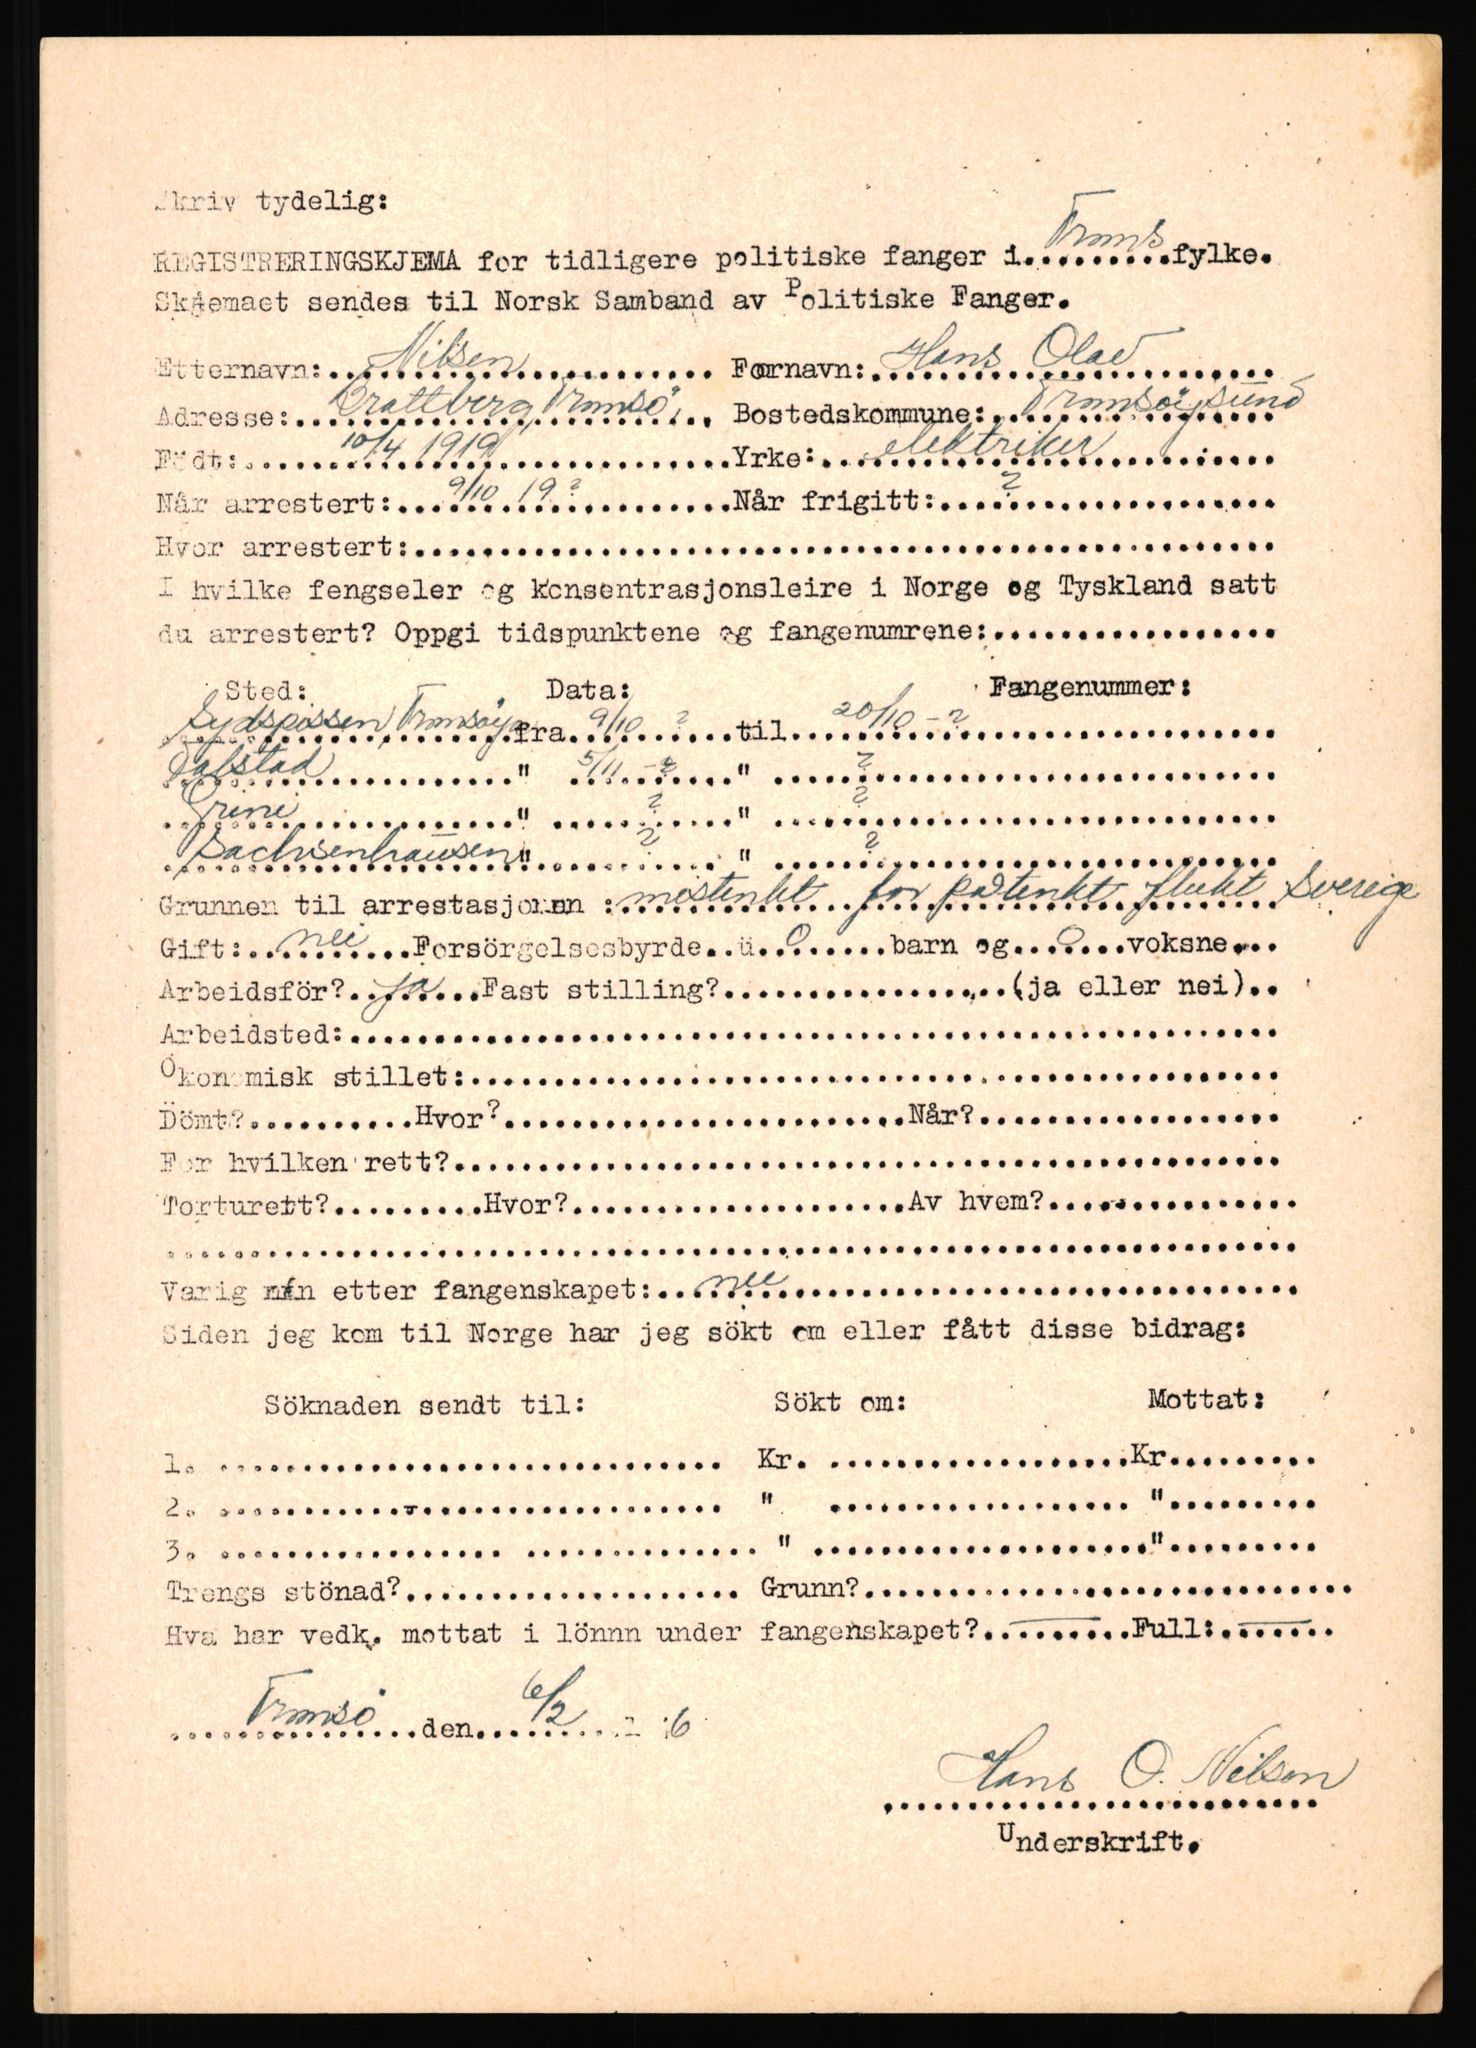 Skriv tydelig:
REGISTRERINGSKJEMA for tidligere politiske fanger i Troms fylke.
Skjemaet sendes til Norsk Samband av Politiske Fanger.
Etternavn: Nilsen Fornavn: Hans Olav
Adresse: Brattberg, Tromsö. Bostedskommune: Tromsöysund
Födt: 10/4 1919 Yrke: elektriker
Når arrestert: 9/10 19? Når frigitt: ?
Hvor arrestert:
I hvilke fengseler og konsentrasjonsleire i Norge og Tyskland satt
du arrestert? Oppgi tidspunktene og fangenumrene:
Sted: Data: Fangenummer:
Sydspissen, Tromsöya fra 9/10 - ? til 20/10 - ?
Falstad " 5/11 - ? " ?
Grini " ? " ?
Sachsenhausen " ? " ?
Grunnen til arrestasjonen: mistenkt for påtenkt flukt Sverige
Gift: nei Forsörgelsesbyrde 0 barn og 0 voksne
Arbeidsför? ja Fast stilling? (ja eller nei)
Arbeidsted:
Ökonomisk stillet:
Dömt? Hvor? Når?
For hvilken rett?
Torturert? Hvor? Av hvem?
Varig mén etter fangenskapet: nei
Siden jeg kom til Norge har jeg sökt om eller fått disse bidrag:
Söknaden sendt til: Sökt om: Mottat:
1. Kr. Kr
2. " "
3. " "
Trengs stönad? Grunn?
Hva har vedk. mottat i lönnn under fangenskapet? — Full: —
Tromsö den 6/2 6
Hans O. Nilsen
Underskrift.